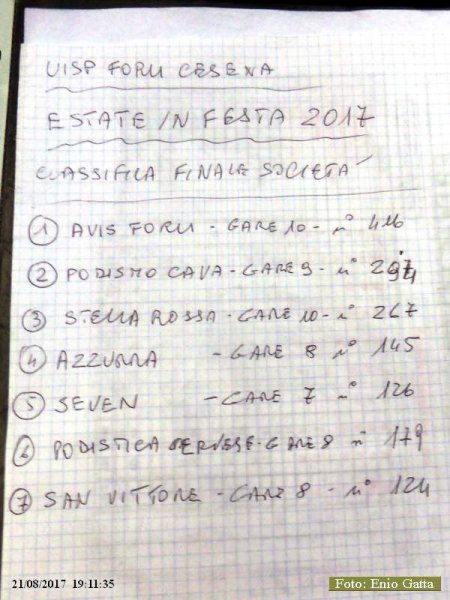 UISP FORLI CESENA
ESTATE IN FESTA 2017
CLASSIFICA FINALE SOCIETA'
1 AVIS FORLI - GARE 10 - n° 416
2 PODISMO CAVA - GARE 9 - n°
3 STELLA ROSSA - GARE 10 - n° 267
4 AZZURRA - GARE 8 n° 145
5 SEVEN - GARE 7 n° 126
6 PODISTICA CERVESE - GARE 8 n° 179
7 SAN VITTORE - GARE 8 - n° 124
21/08/2017 19:11:35
Foto: Enio Gatta